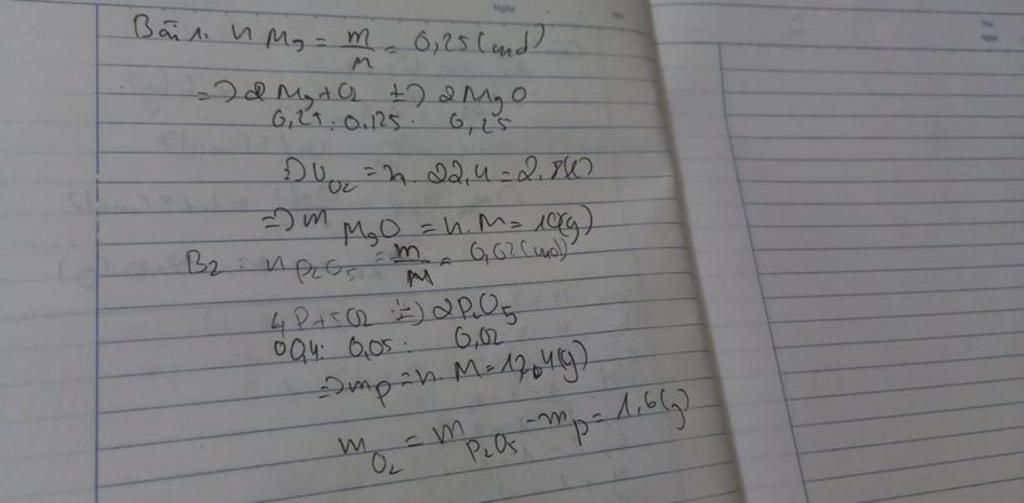 Bài 1. n Mg = m/M = 0,25 (mol)
=> 2Mg + O2 t=> 2MgO
0,25 : 0.125 . 0,25
=> V O2 = n. 22,4 = 2,8 (l)
=> m MgO = n.M = 10(g)
B2 : n P2O5 = m/M = 0,02 (mol)
4P + 5O2 t=> 2P2O5
0,04: 0,05: 0,02
=> mP = n. M =
m O2 = m P2O5 - mp = 1,6 (g)